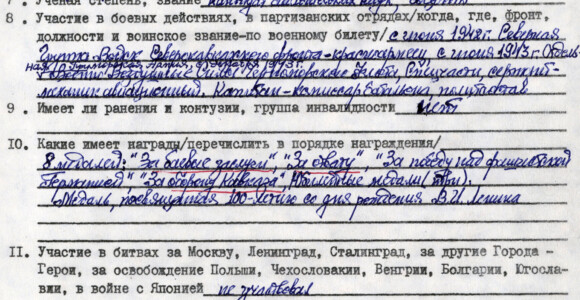 7. Ученая степень, звание кандидат
8. Участие в боевых действиях, в партизанских отрядах/когда, где, фронт,
должности и воинское звание-по военному билету/ с июня 1942г. Северная
группа войск Северокавказского фронта-красноармеец с июня 1943г.
Военно Воздушные Силы Черноморского флота
9. Имеет ли ранения и контузии, группа инвалидности нет
10. Какие имеет награды/перечислить в порядке награждения/
8 медалей: "За боевые заслуги", "За отвагу", "За победу над фашистской
Германией", "За оборону Кавказа", Юбилейные медали (три),
Медаль, посвященная 100-летию со дня рождения В.И. Ленина
11. Участие в битвах за Москву, Ленинград, Сталинград, за другие Города -
Герои, за освобождение Польши, Чехословакии, Венгрии, Болгарии, Югосла-
вии, в войне с Японией не участвовал